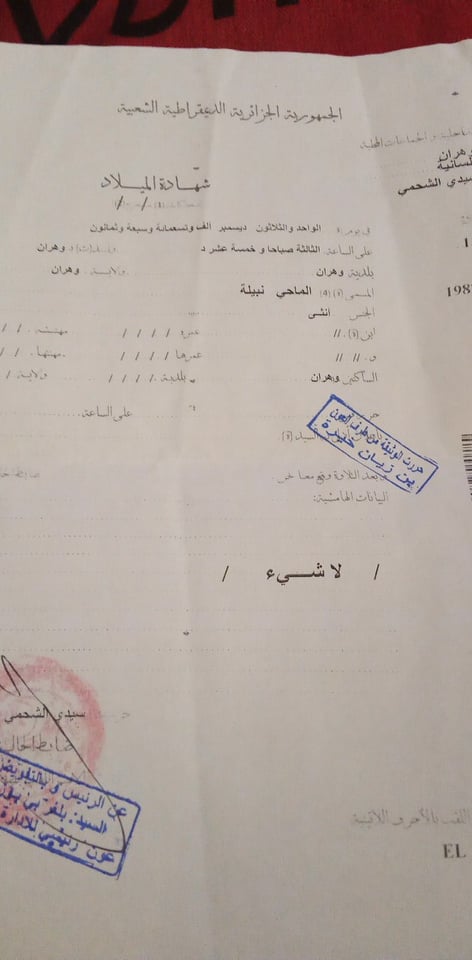 الجمهورية الجزائرية الديمقراطية الشعبية
وهران
السانية
سيدي الشحمي
شهادة الميلاد
في يوم: الواحد والثلاثون ديسمبر ألف وتسعمائة وسبعة وثمانون
على الساعة: الثالثة صباحا و خمسة عشر د وهران
بلدية وهران ولاية. وهران
المسمى (ة) الماحي نبيلة
198
الجنس أنثى
ابن (ة). // عمره / / / / مهنته. / /
و. // // عمرها / / / / مهنتها. / /
الساكنين وهران بلدية. / / / / ولاية /
على الساعة.
السيد (ة).
حررت الوثيقة من طرف العون
بن زيان خيرة
بعد التلاوة وقع معنا نحن
البيانات الهامشية:
/ لا شيء /
سيدي الشحمي
ضابط الحالة
عن الرئيس و بالتفويض
السيد:
عون رئيسي للإدارة
اللقب بالأحرف اللاتينية
EL